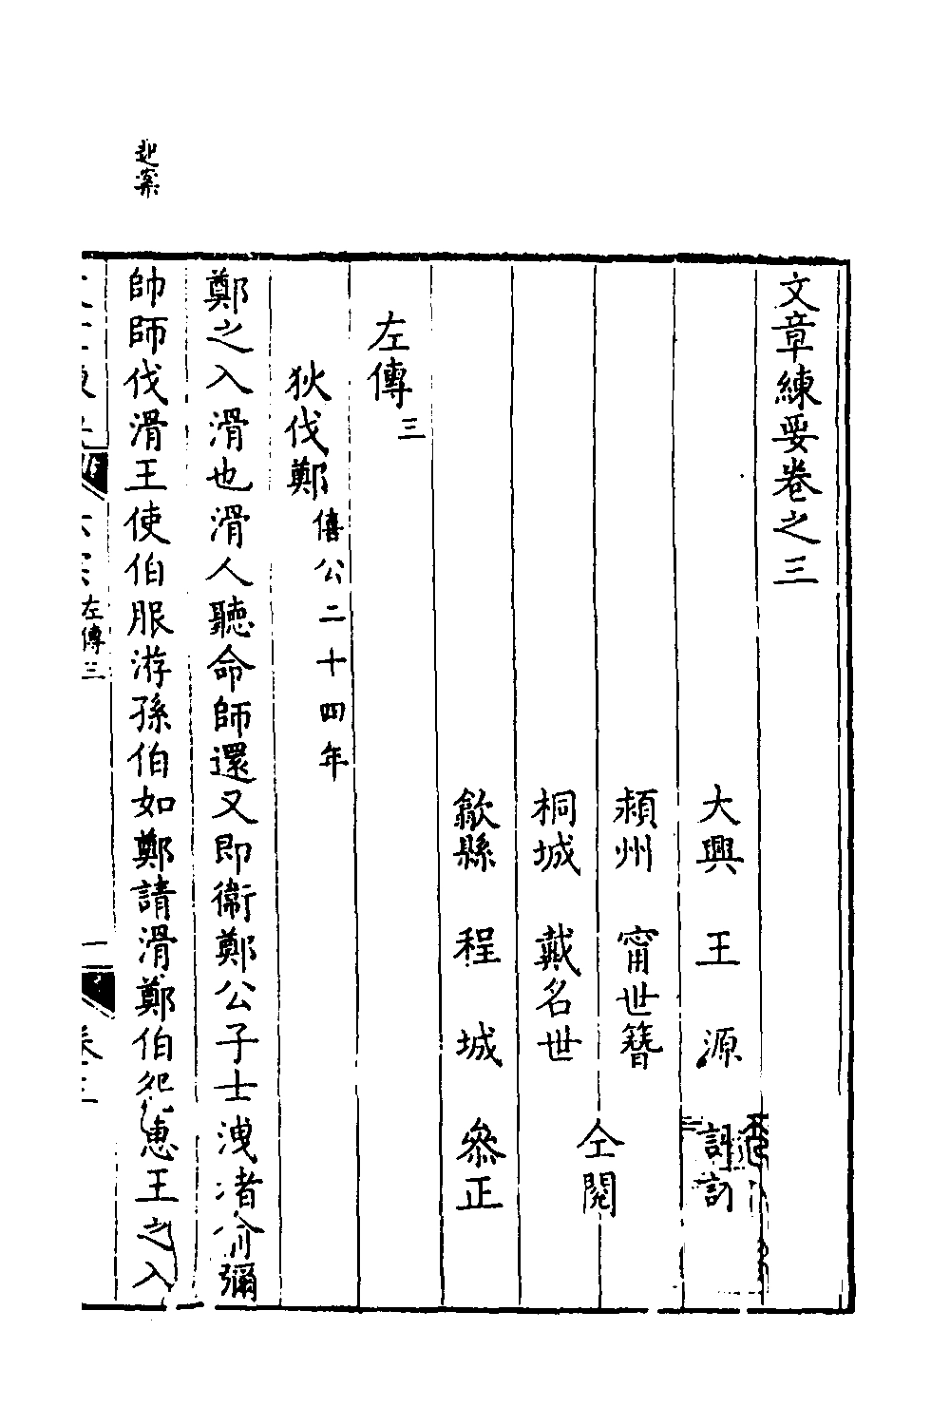 文章練要卷之三
大興 王 源 評訂
潁州 甯世簪
桐城 戴名世
仝閱
歙縣 程 城 叅正
左傳三
狄伐鄭僖公二十四年
鄭之入滑也滑人聽命師還又即衛鄭公子士洩堵俞彌
帥師伐滑王使伯服游孫伯如鄭請滑鄭伯怨惠王之入
起案
左傳三
一